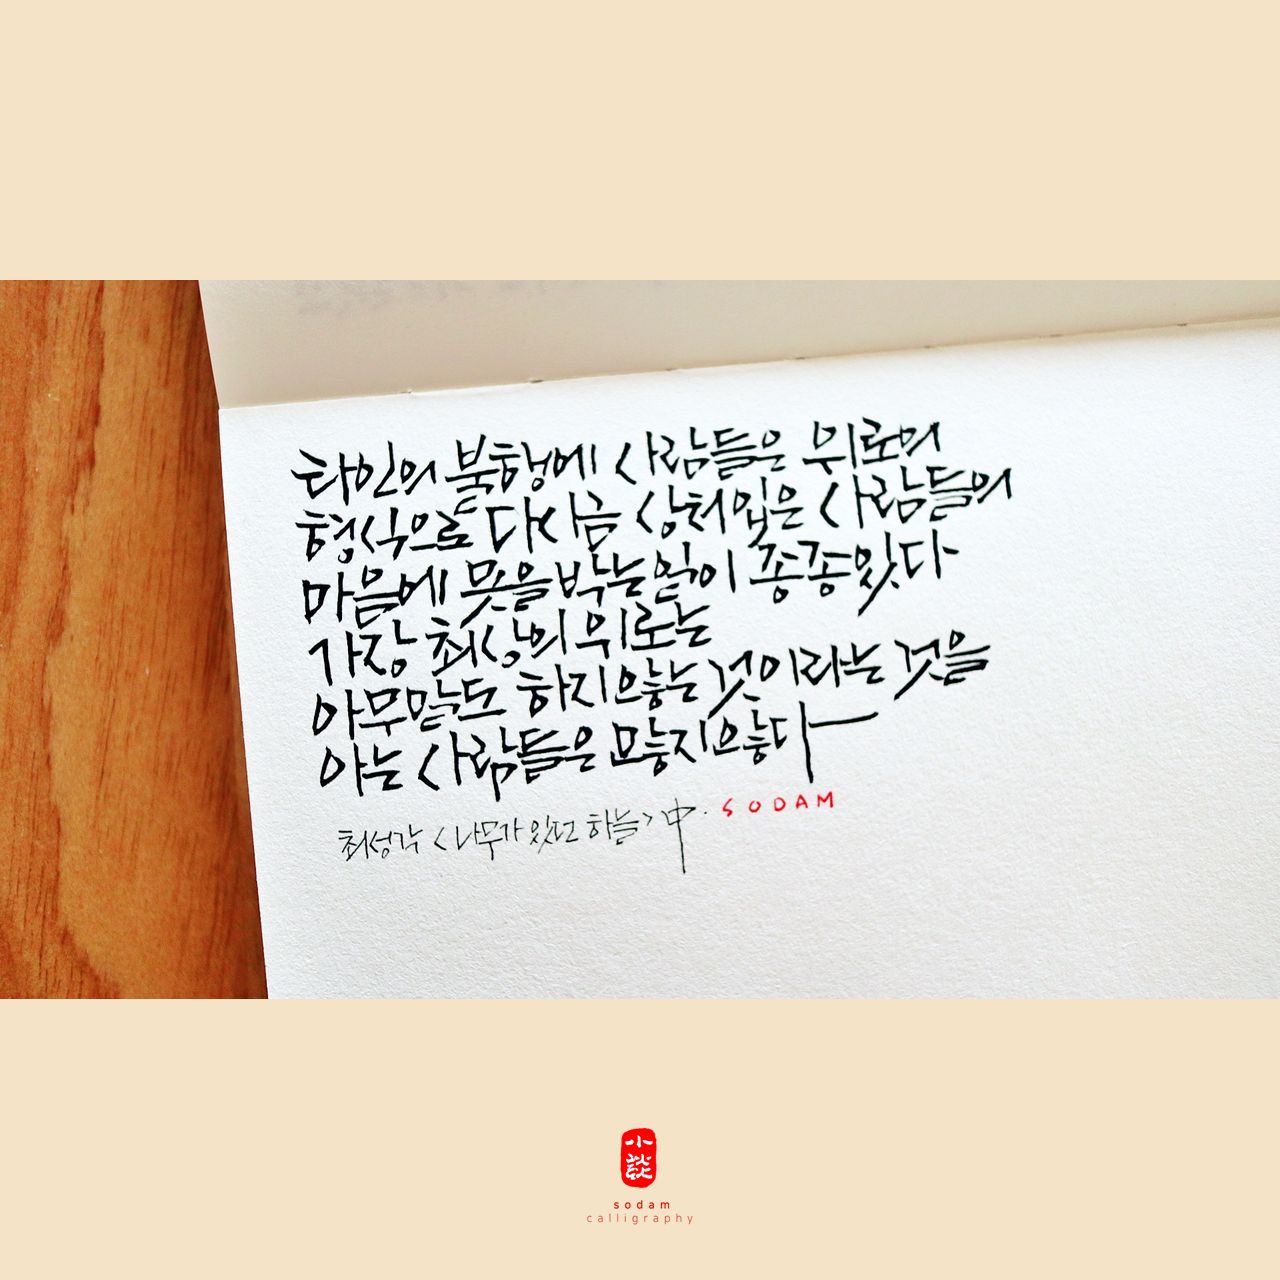 타인의 불행에 사람들은 위로의
형식으로 다시금 상처입은 사람들의
마음에 못을 박는 일이 종종 있다
가장 최상의 위로는
아무말도 하지 않는 것이라는 것을
아는 사람들은 많지 않다
최성각 <나무가 있던 하늘> 中. SODAM
小談
sodam
calligraphy